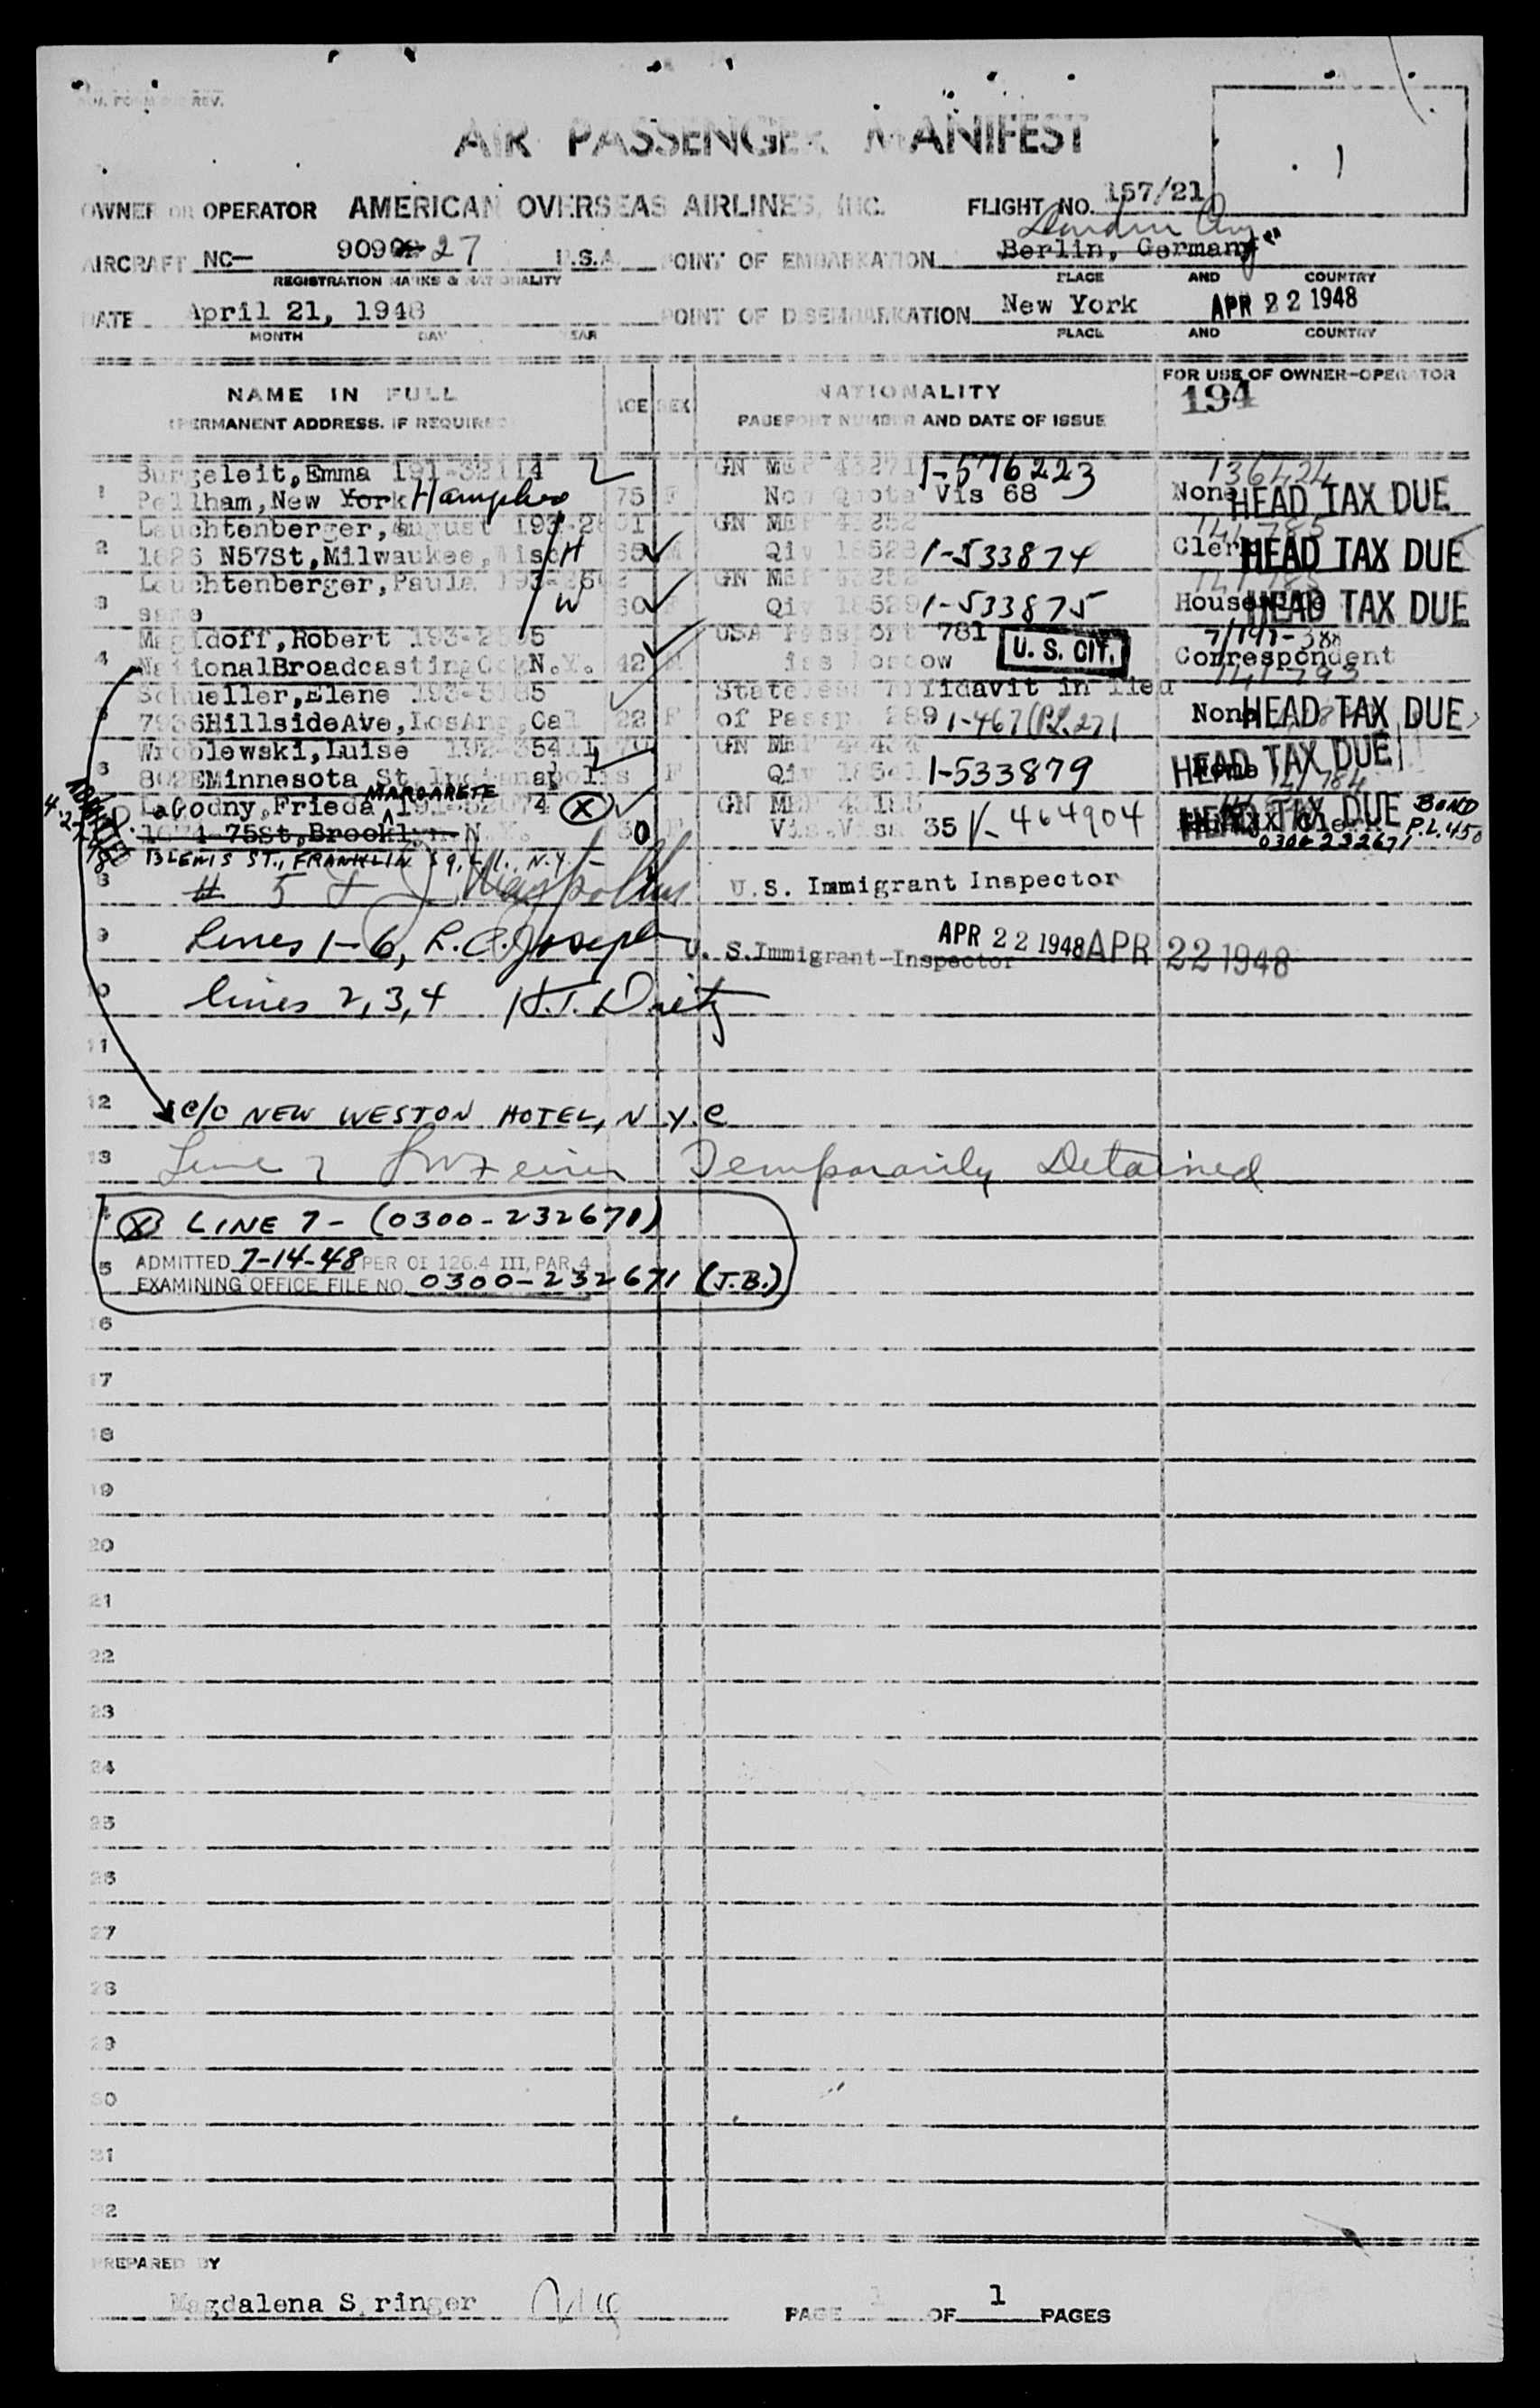 REV.
AIR PASSENGER MANIFEST
OWNER OR OPERATOR AMERICAN OVERSEAS AIRLINES, INC. FLIGHT NO. 157/21
AIRCRAFT NC- 909 27 U.S.A. POINT OF EMBARKATION Berlin, Germany
REGISTRATION MARKS & NATIONALITY PLACE AND COUNTRY
DATE April 21, 1948 POINT OF DISEMBARKATION New York APR 22 1948
MONTH DAY YEAR PLACE AND COUNTRY
NAME IN FULL AGE SEX NATIONALITY FOR USE OF OWNER-OPERATOR
(PERMANENT ADDRESS, IF REQUIRED) PASSPORT NUMBER AND DATE OF ISSUE 194
Burgeleit, Emma 191-32114 GN MEP 1-576223 136424
1 Pellham, New York Hampshire 75 F Non Quota Vis 68 None HEAD TAX DUE
Leuchtenberger, August GN MEP 141785
2 1626 N57St, Milwaukee, Wisc H 65 M Qiv 1-533874 Clerk HEAD TAX DUE
Leuchtenberger, Paula GN MEP 141785
3 same W 60 F Qiv 18529 1-533875 Housewife HEAD TAX DUE
Magidoff, Robert USA Passport 781 U. S. CIT.
4 National Broadcasting Co, N.Y. 42 M iss Moscow Correspondent
Schueller, Elene Stateless Affidavit in lieu 141793
5 7936 HillsideAve, LosAng, Cal 22 F of Passp. 289 1-467 (P.L. 271 None HEAD TAX DUE
Wroblewski, Luise GN MEP HEAD TAX DUE
6 802EMinnesota St, Indianapolis F Qiv 1-533879 None 141784
Lagodny, Frieda MARGARETE GN MEP HEAD TAX DUE BOND
1074-75St, Brooklyn N.Y. 30 F Vis. Visa 35 V-464904 P.L. 450
ADMITTED
13 LEWIS ST., FRANKLIN Sq, L.I., N.Y. 0300-232671
8 # 5 + U.S. Immigrant Inspector
9 Lines 1-6, R.C. Joseph U. S. Immigrant Inspector APR 22 1948 APR 22 1948
10 lines 2, 3, 4 H.J. Dietz
11
12 c/o NEW WESTON HOTEL, N.Y.C
13 Line 7 Temporarily Detained
14 (X) LINE 7 - (0300-232671)
15 ADMITTED 7-14-48 PER OI 126.4 III, PAR. 4
EXAMINING OFFICE FILE NO. 0300-232671 (J.B.)
16
17
18
19
20
21
22
23
24
25
26
27
28
29
30
31
32
PREPARED BY
Magdalena Springer PAGE 1 OF 1 PAGES